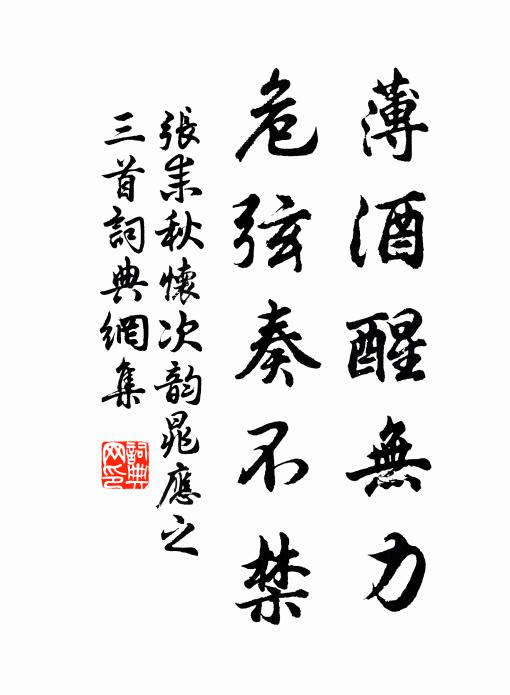 薄酒醒無力
危弦奏不禁
張耒秋懷次韵晁應之
三首詞典網集
詞典
网印